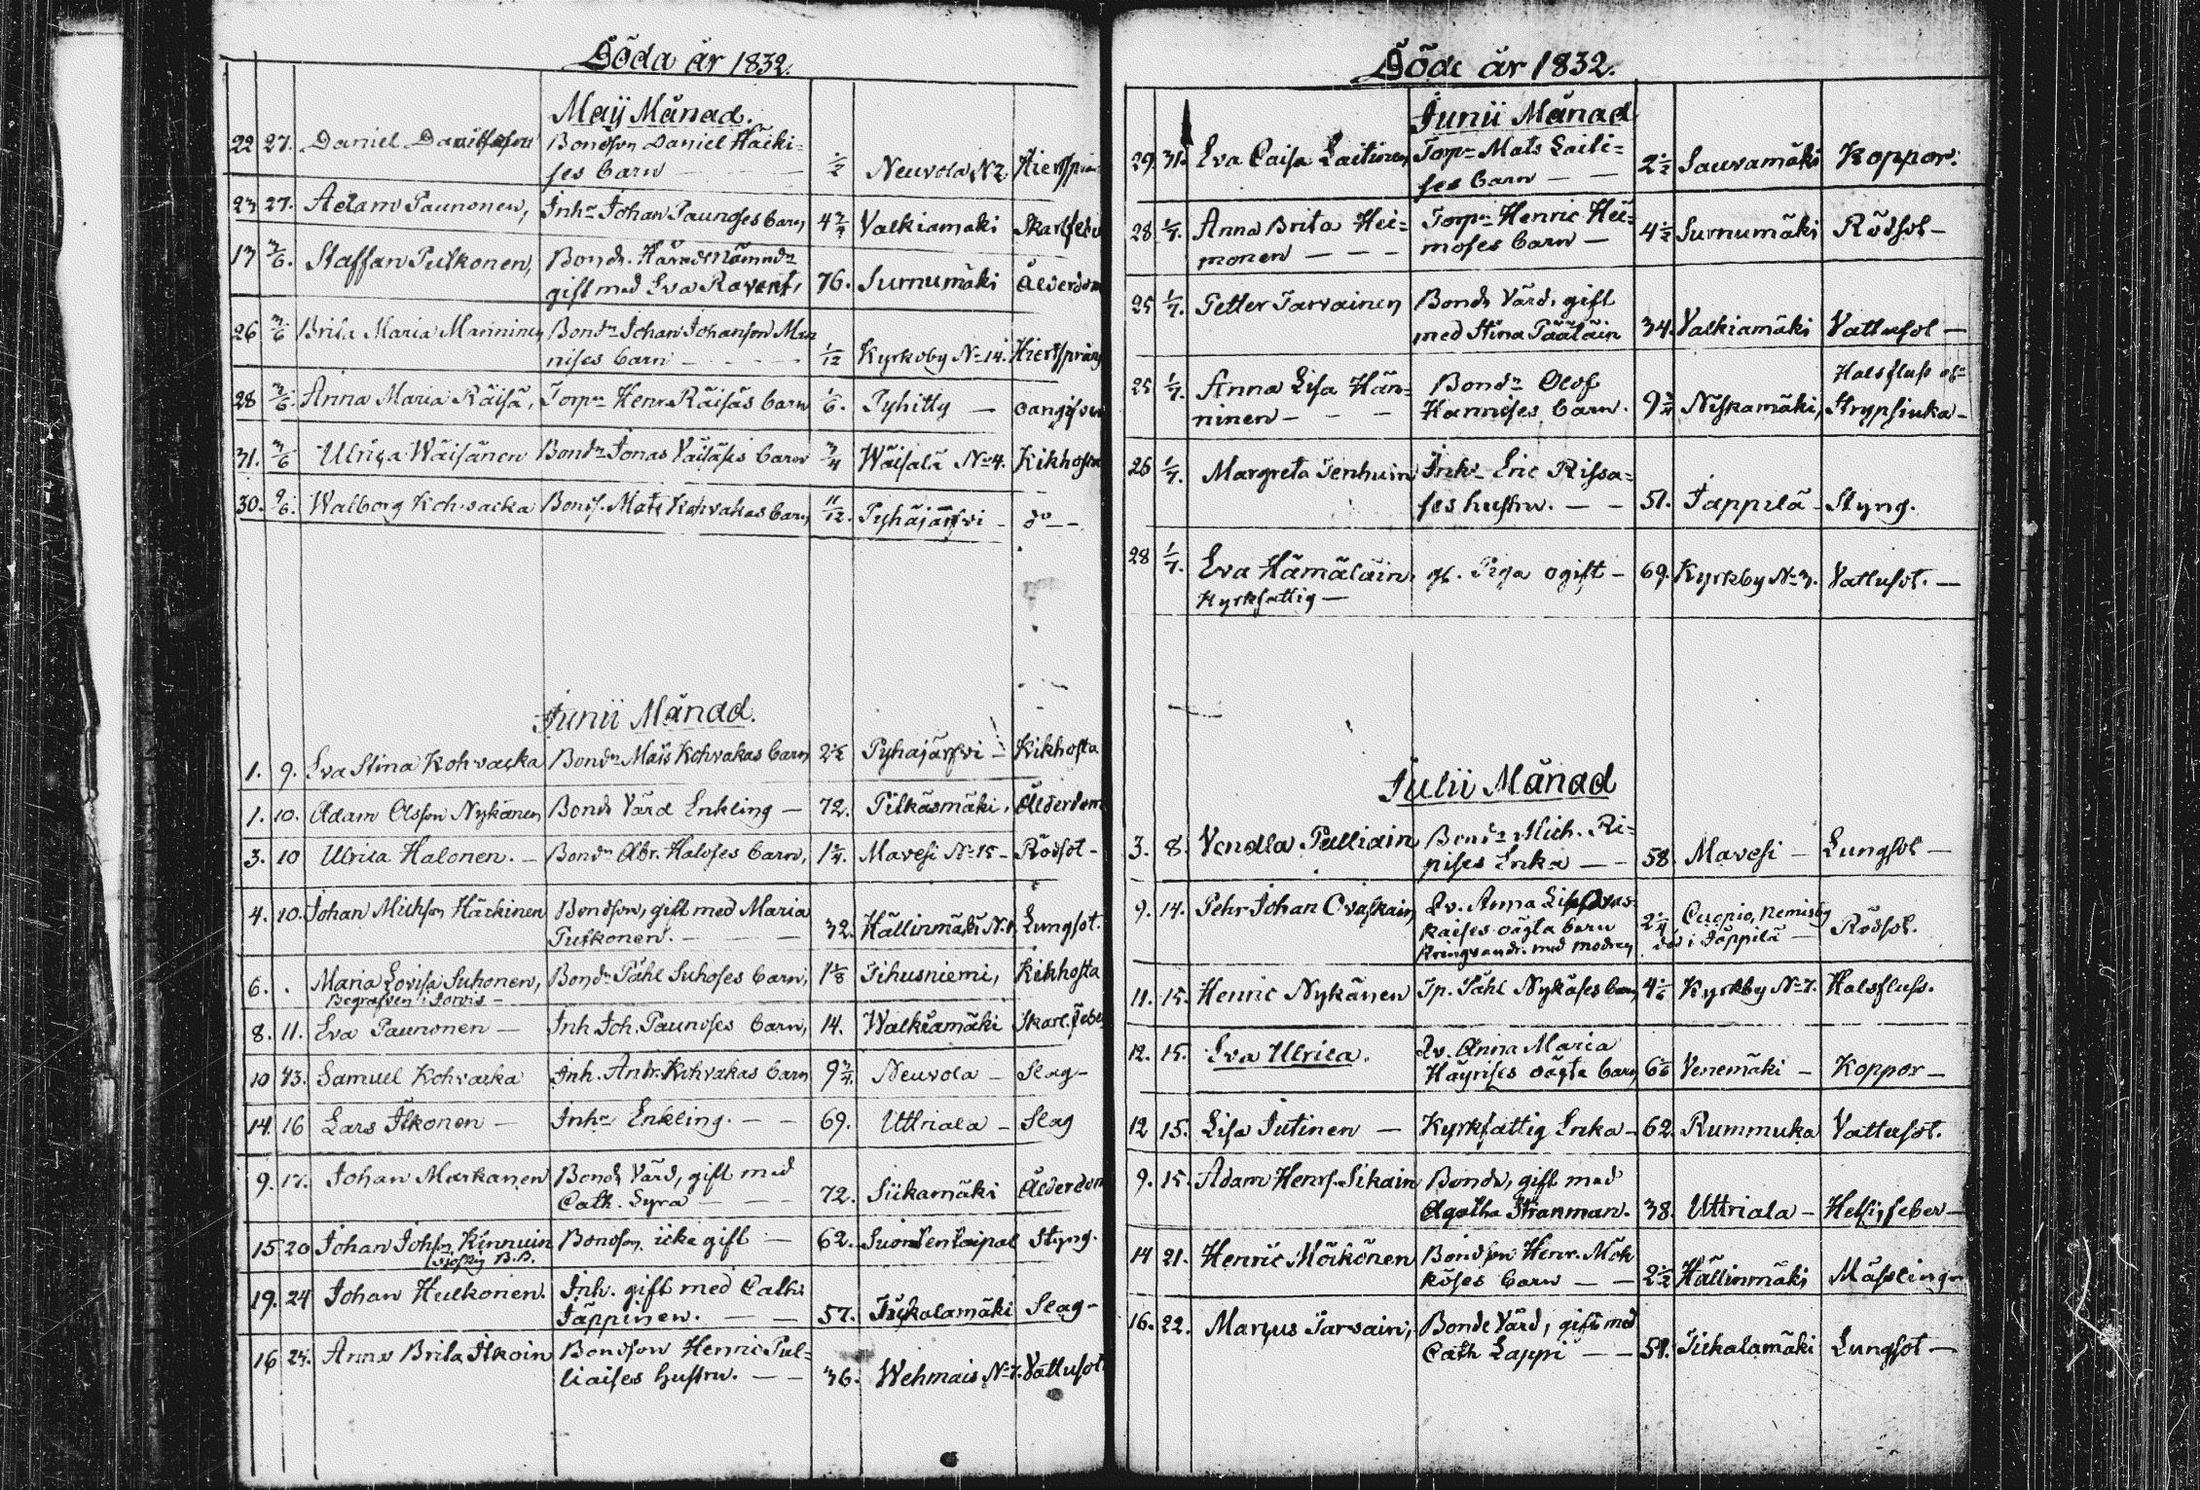 Döda år 1832.
Maij Månad.
22 27. Daniel Bondson Daniel Häcki=
ses barn — 1/2 Neuvola N2.
23 27. Adam Paunonen, Inhr Johan Paunoses barn, Valkiamäki
13 3/6. Staffan Putkonen, Bond. Häradsnämnd
gift med Eva 76. Surnumäki Ålderdom
26 3/6 Brita Maria Manninen Bondn Johan Johanson Man
nises barn — 1/12 Kyrkoby No 14. Hiertsprång
28 3/6. Anna Maria Räisä, Torpn Henr. Räisäs barn 1/6. Pyhitty —
31. 3/6 Ulrica Wäisänen Bondn Jonas Väisäses barn 3/4 Wäisälä No 4. Kikhosta
30. 9/6. Walborg Kohvacka Bonds. Mats Kohvakas barn, 11/12. Pyhäjärfvi — do —
Junii Månad.
1. 9. Eva Stina Kohvacka Bondn Mats Kohvakas barn Pyhäjärfvi — Kikhosta
1. 10. Adam Olsson Nykänen Bonde Värd Enkling — 72. Pitkäsmäki, Ålderdom
3. 10 Ulrica Halonen. — Bondn Abr. Haloses barn, Mavesi No 15 — Rödsot —
4. 10. Johan Michson Härkinen Bondson, gift med Maria
Putkonen. — 32. Hällinmäki N.1, Lungsot.
6. . Maria Lovisa Suhonen, Bondn Påhl Suhoses barn, 1 1/8 Tihusniemi, Kikhosta
Begrafven i Jorois —
8. 11. Eva Paunonen — Inh. Joh. Paunoses barn, 14. Walkiamäki Skarl. feber
10 13. Samuel Kohvacka Inh. Andr. Kohvakas barn 9 3/4. Neuvola — Slag —
14. 16 Lars Ikonen — Inhr Enkling. — 69. Uttriala — Slag
9. 17. Johan Markanen Bonde Värd, gift med
Cath. Syrä — 72. Siikamäki Ålderdom
15 20 Johan Johsn Kinnuin Bondson, icke gift — 62. Suontentaipal Styng.
19. 24 Johan Hulkonen. Inh. gift med Cath.
Jäppinen. — 57. Tiikalamäki Slag —
16 25. Anna Brita Ikoin Bondson Henric Pul=
liaises hustru. — 36. Wehmais No 7. Vattusot
Döde år 1832.
Junii Månad
29. 31. Eva Caisa Laitinen, Torpn Mats Laiti=
ses barn — 2 1/2 Sauvamäki Koppor.
28 1/7. Anna Brita Hei= Torpn Henric Hei=
monen — moses barn — 4 1/2 Surnumäki Rödsot —
25 1/7. Petter Tarvainen Bonde Värd, gift
med Stina Pääläin 34. Valkiamäki Vattusot —
25 1/7. Anna Lisa Hän= Bondn Olof Halsfluss och
ninen — Hännises barn. 9 3/4 Niskamäki, Strypsiuka —
26 1/7. Margreta Tenhuin Inh. Eric Rissa=
ses hustru. — 51. Jäppilä — Styng.
28 1/7. Eva Hämäläin, gl. Piga ogift — 69. Kyrkby No 3. Vattusot. —
Kyrkfattig —
Julii Månad
3. 8. Vendla Pulliain Bondn Mich. Ri=
pises Enka — 58. Mavesi — Lungsot —
9. 14. Pehr Johan Ovaskain, Qv. Anna Lisa Ovas=
kaises oägta barn Cuopio, Nemisby
Kringvandr. med modren 2 1/4 död i Jäppilä — Rödsot.
11. 15. Henric Nykänen Tp. Påhl Nykäses barn, 4 1/6 Kyrkby No 7. Halsfluss.
12. 15. Eva Ulrica. Qv. Anna Maria
Häyrises oägta barn, Venemäki — Koppor —
12 15. Lisa Jutinen — Kyrkfattig Enka — 62. Rummuka Vattusot.
9. 15. Adam Henrs. Sikain Bonde, gift med
Agatha Stranman. 38. Uttriala — Hetsig feber —
14 21. Henric Möikönen Bondson Henr. Möik
köses barn — 2 1/2 Hällinmäki Mässlingn
16. 22. Marcus Tarvain, Bonde Värd, gift med
Cath Lappi — 51. Tiikalamäki Lungsot —